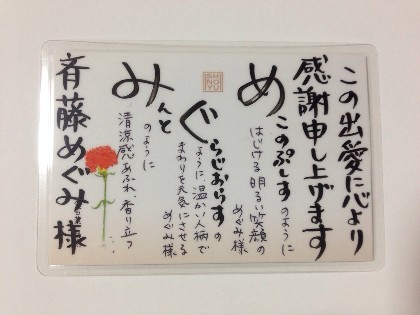 この出愛に心より
感謝申し上げます
めこのぷしすのように
はじける明るい笑顔の
めぐみ様
SHI
NO
YU
ぐらじおらすの
ように、温かい人柄で
まわりを元気にさせる
めぐみ様
みんと
のように
清涼感あふれ香り立つ…
斉藤めぐみ様